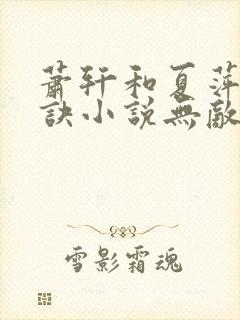 蕭軒和夏萍
訣小說無敵
雪影霜魂